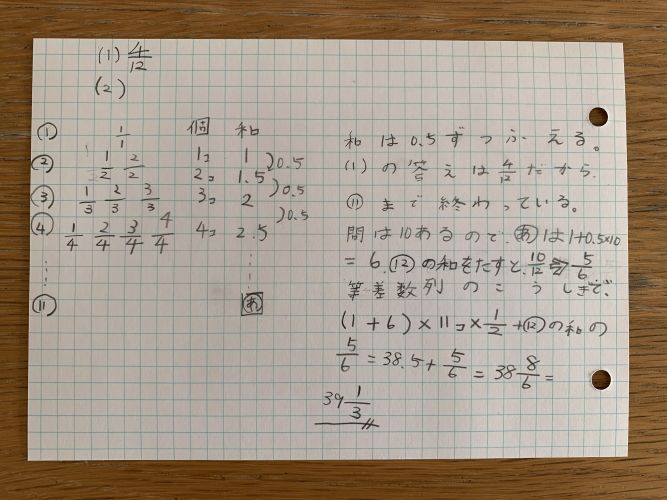 (1) 4/12
(2)
個 和
① 1/1 1コ 1
② 1/2 2/2 2コ 1.5
③ 1/3 2/3 3/3 3コ 2
④ 1/4 2/4 3/4 4/4 4コ 2.5
0.5
0.5
0.5
⑪ あ
和は0.5ずつふえる。
(1)の答えは4/12だから、
⑪まで終わっている。
間は10あるので、あは1+0.5×10
=6、⑫の和をたすと、10/12 5/6
等差数列のこうしきで、
(1+6)×11コ×1/2+⑫の和の
5/6=38.5+5/6=38 8/6=
39 1/3